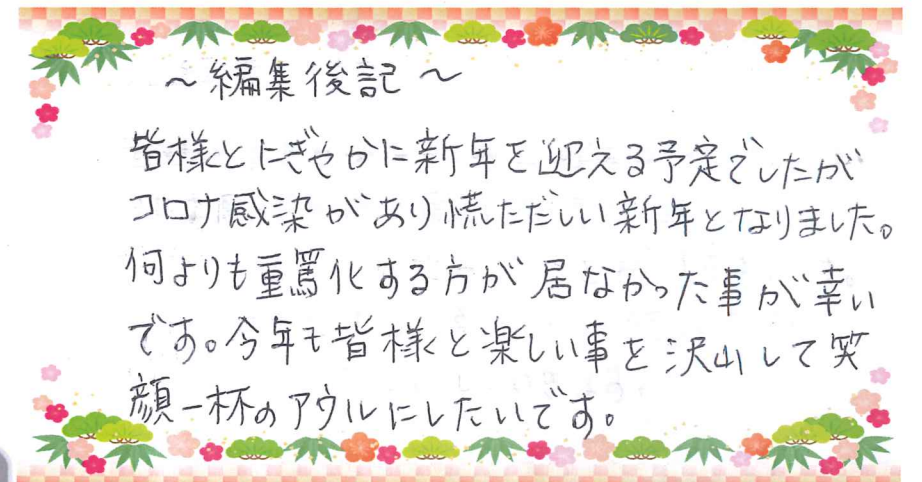 ～編集後記～
皆様とにぎやかに新年を迎える予定でしたが
コロナ感染があり慌ただしい新年となりました。
何よりも重篤化する方が居なかった事が幸い
です。今年も皆様と楽しい事を沢山して笑
顔一杯のアウルにしたいです。